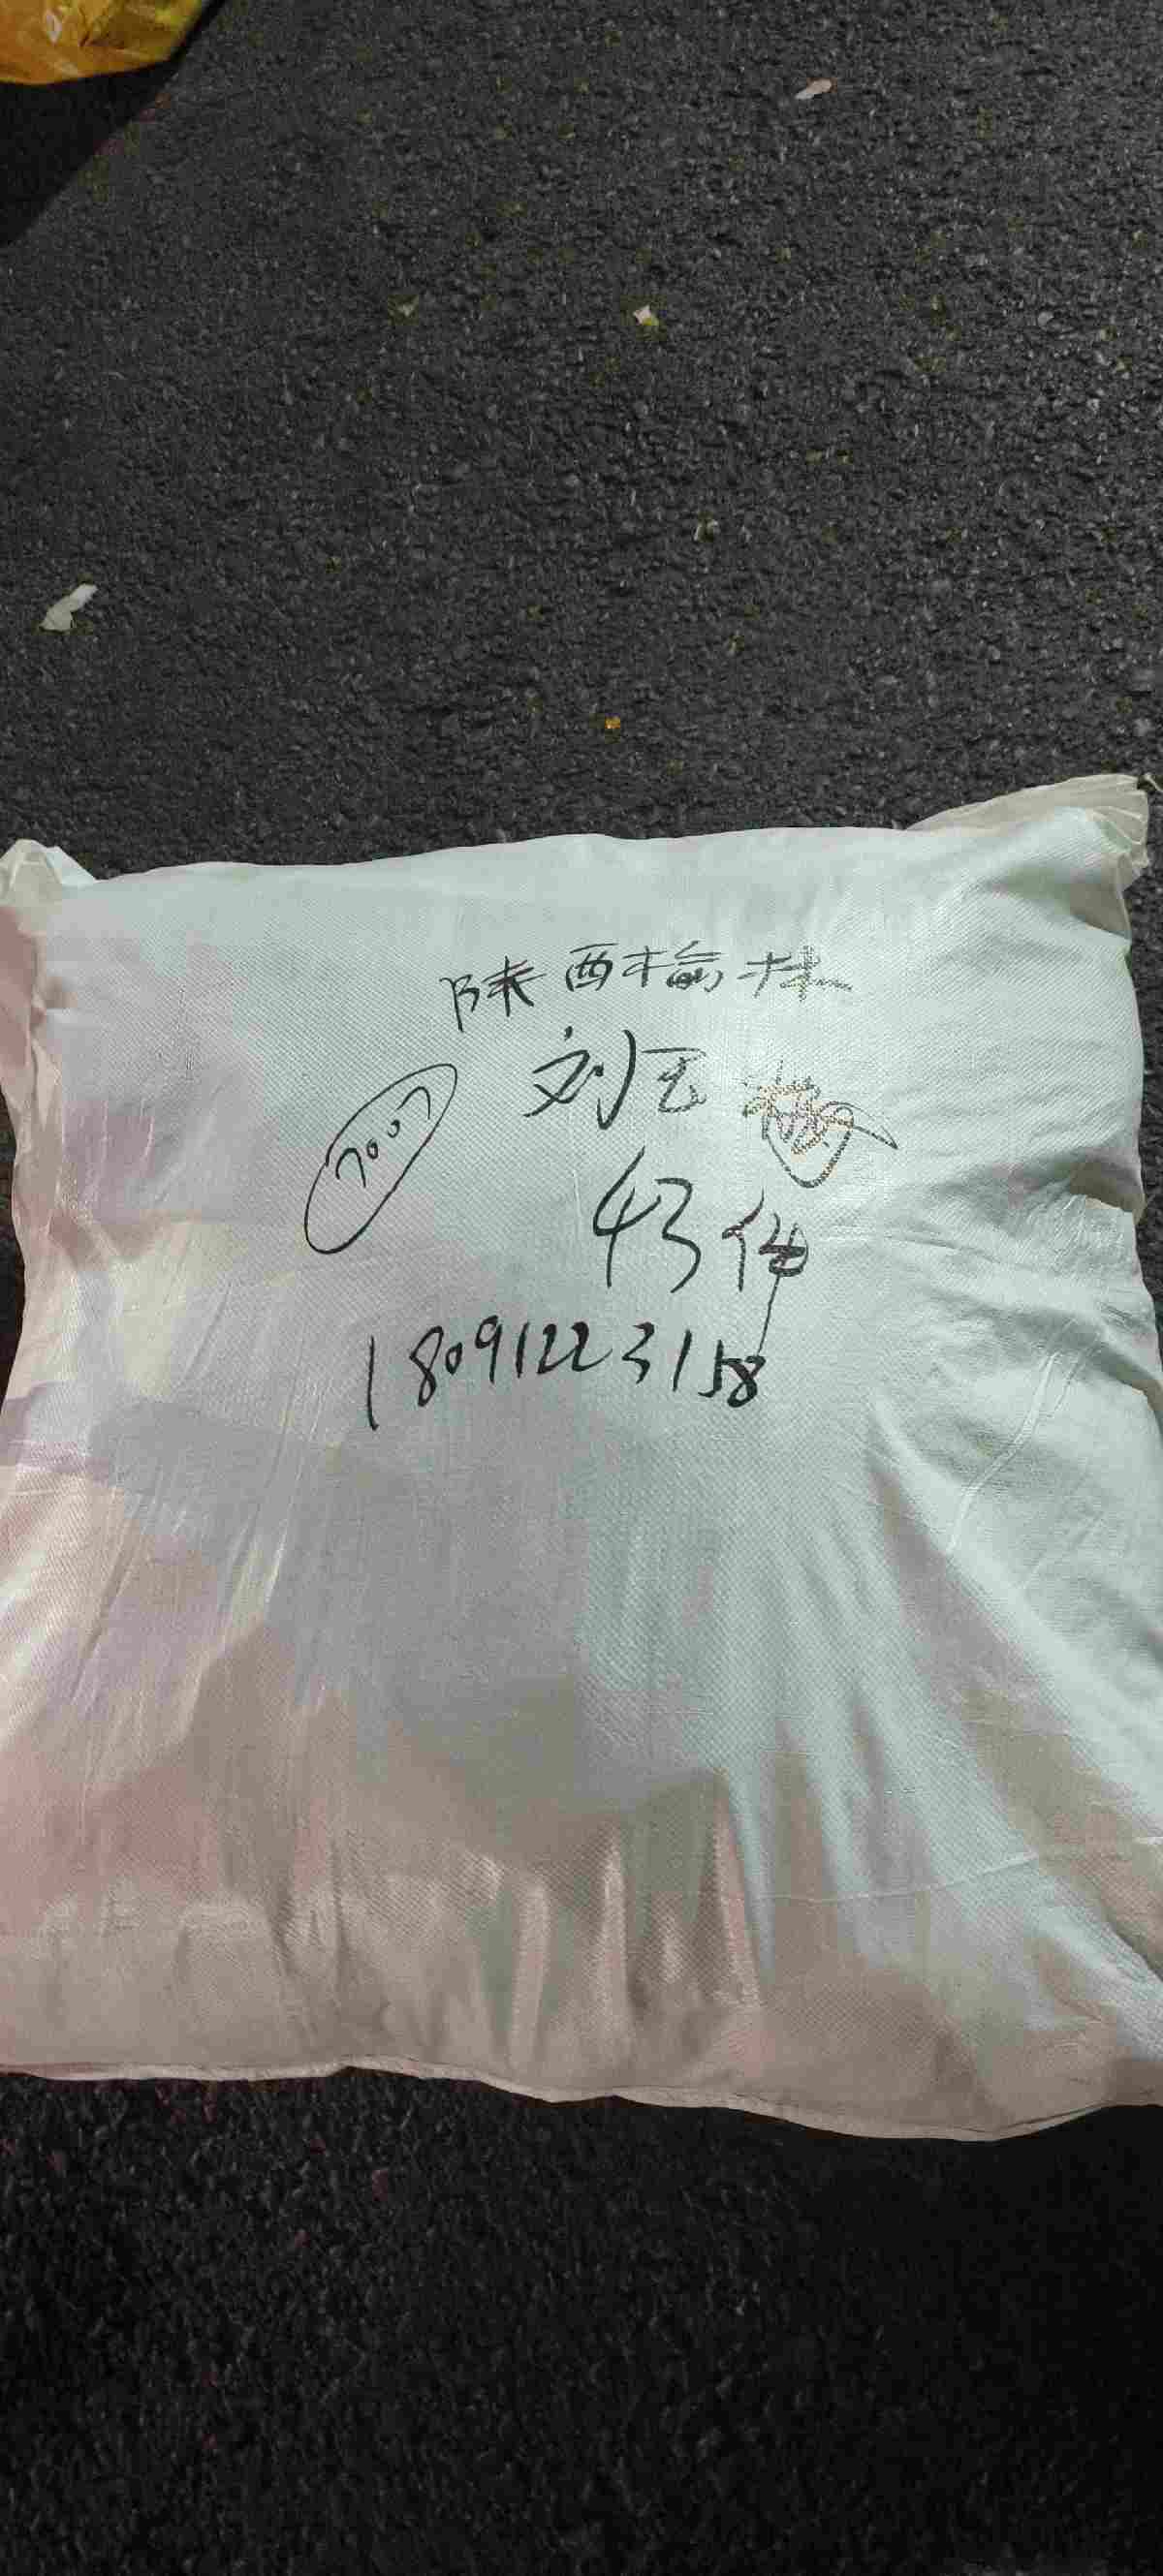 陕西榆林
刘玉梅
7007
43件
18091223158